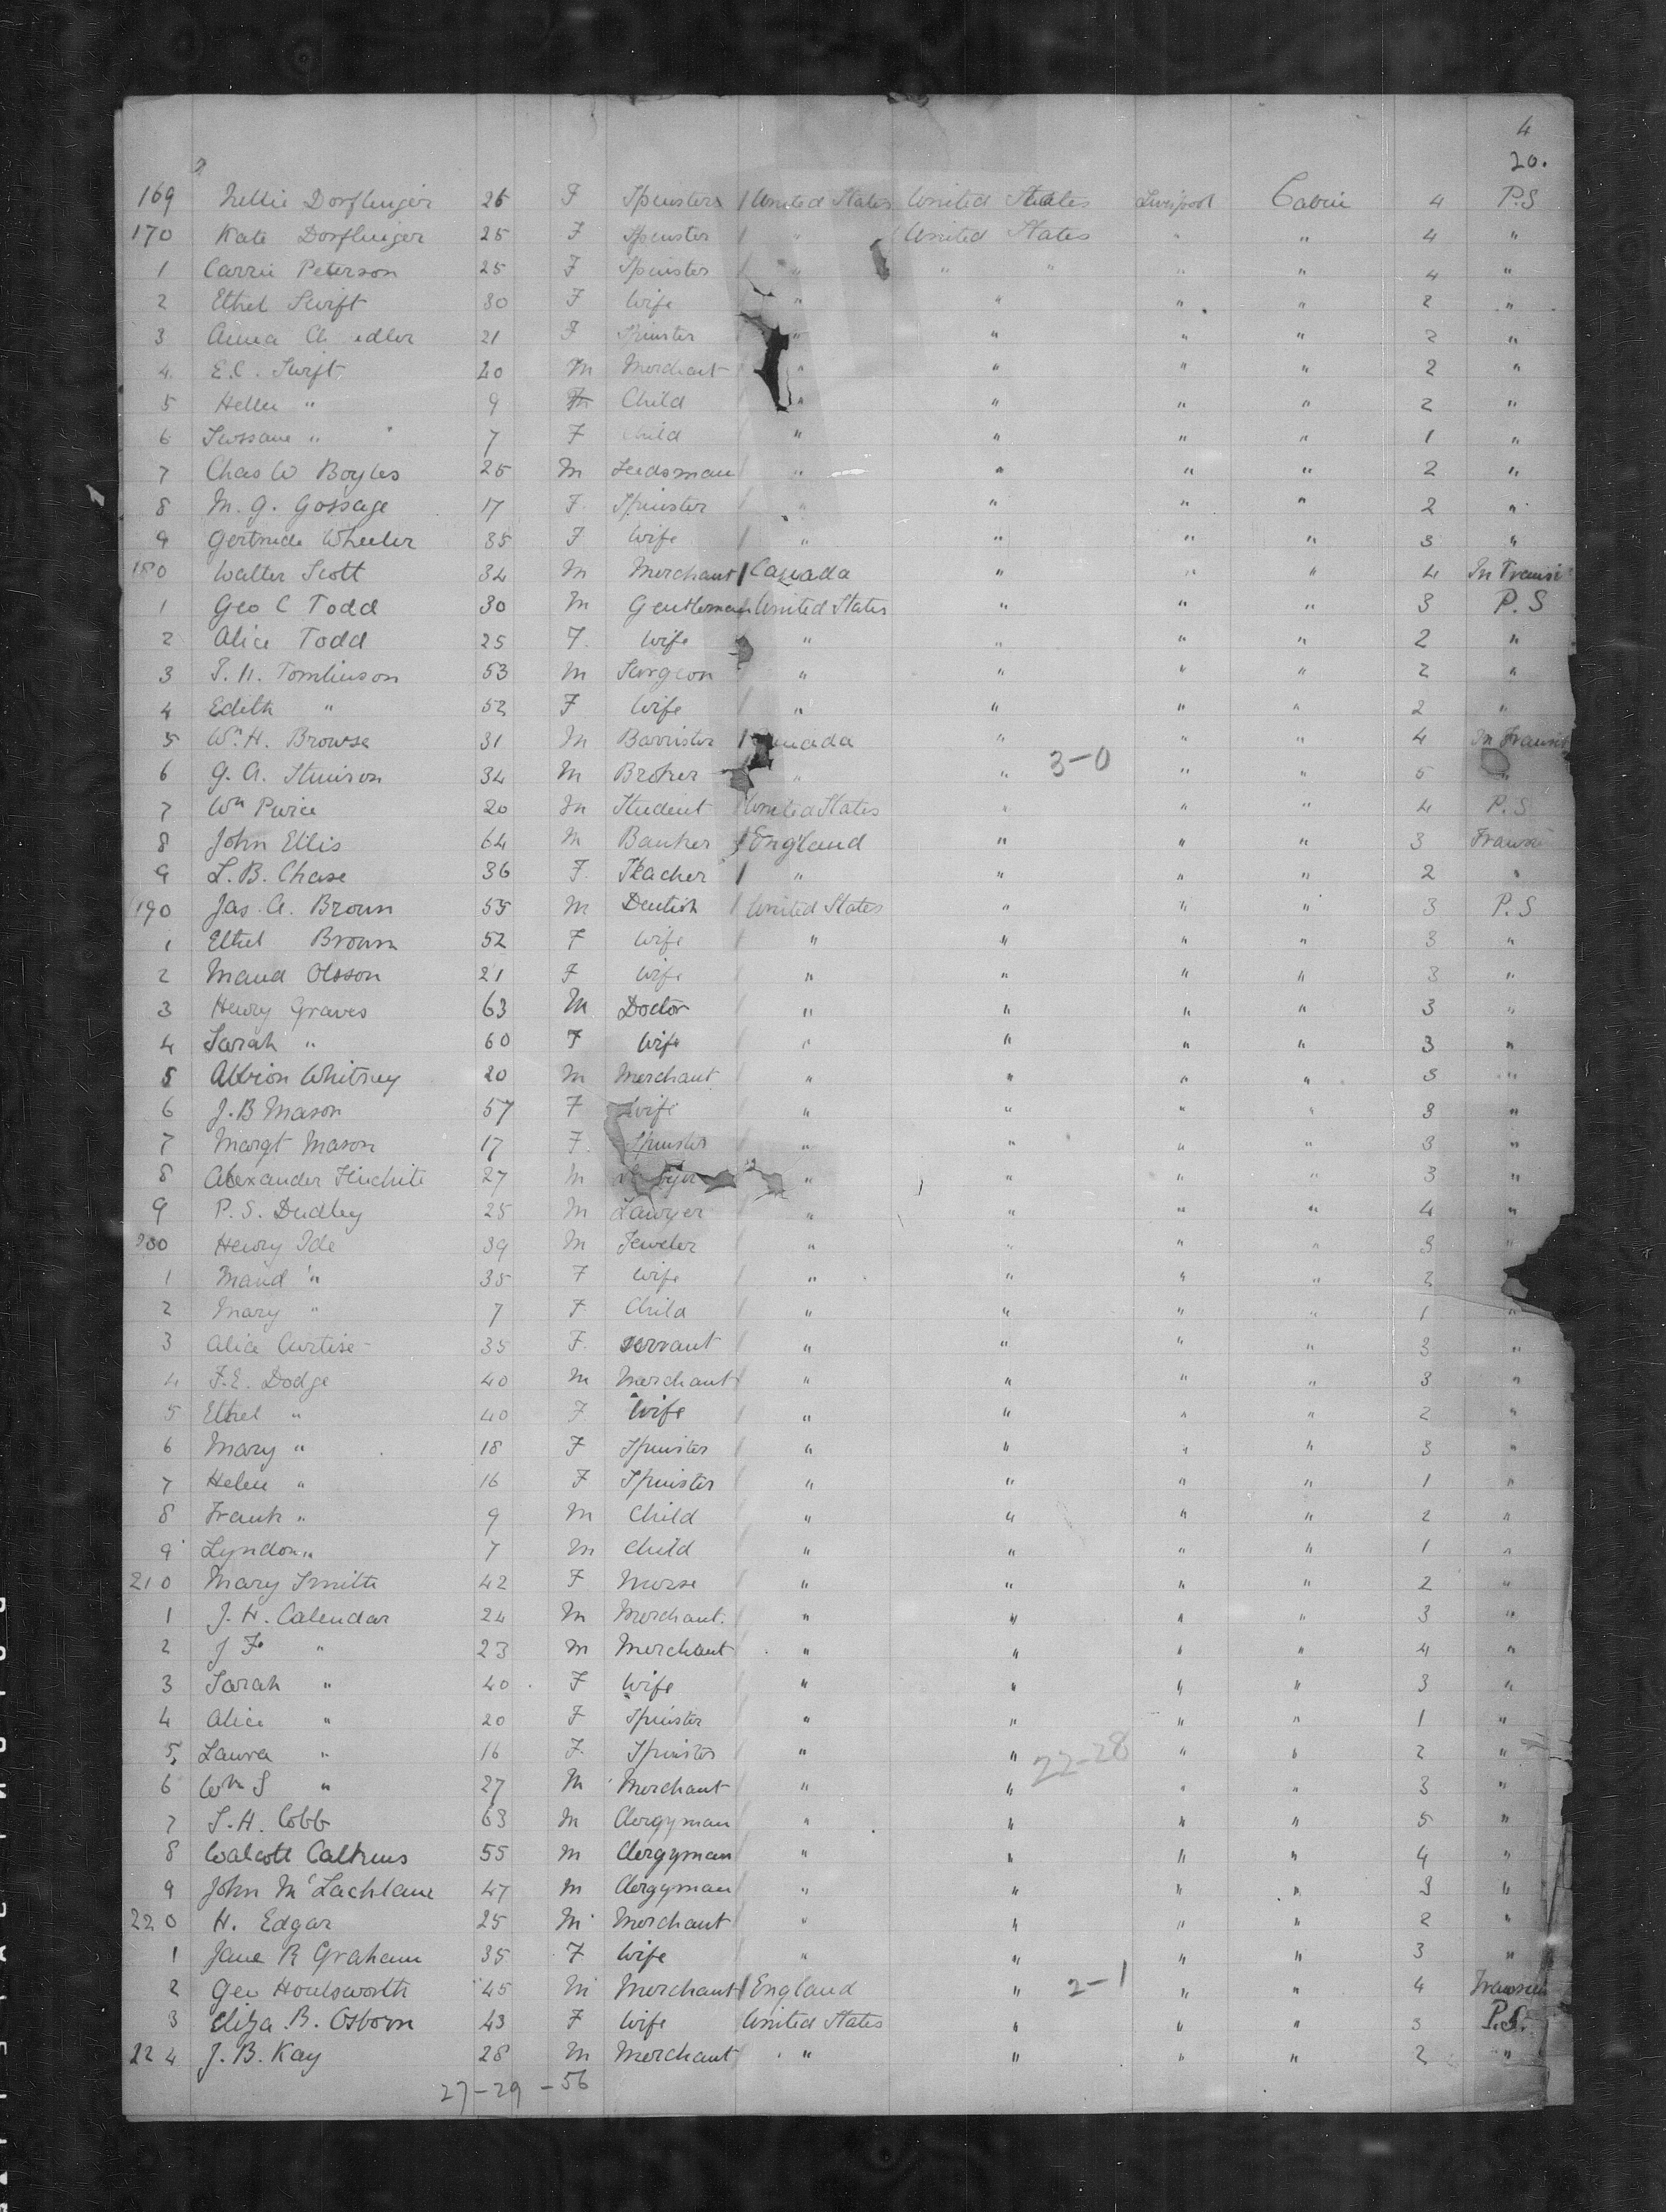 4
20.
169 Nellie Dorflinger 26 F Spinster / United States United States Liverpool Cabin 4 P.S
170 Kate Dorflinger 25 F Spinster / " United States " " 4 "
1 Carrie Peterson 25 F Spinster / " " " " " 4 "
2 Ethel Swift 30 F Wife / " " " " 2 "
3 Anna Ch edler 21 F Spinster / " " " " 2 "
4 E.C. Swift 40 M Merchant " " " " 2 "
5 Hellen " 9 F Child " " " " 2 "
6 Sussane " 7 F Child " " " " 1 "
7 Chas W Boyles 25 M Seedsman / " " " " 2 "
8 M. G. Gossage 17 F. Spinster / " " " " 2 "
9 Gertrude Wheeler 35 F Wife / " " " " 3 "
180 Walter Scott 34 M Merchant / Canada " " " 4 In Transi
1 Geo C Todd 30 M Gentleman United States " " " 3 P.S
2 Alice Todd 25 F. Wife " " " " 2 "
3 S. H. Tomlinson 53 M Surgeon " " " " 2 "
4 Edith " 52 F Wife / " " " " 2 "
5 Wm. H. Browse 31 M Barrister / nada " " " 4 In Transit
6 G. A. Stimson 34 M Broker " " 3-0 " " 5 "
7 Wm Price 20 M Student / United States " " " 4 P.S
8 John Ellis 64 M Banker / England " " " 3 Transi
9 L. B. Chase 36 F. Teacher / " " " " 2 "
190 Jas. A. Brown 55 M Dentist / United States " " " 3 P.S
1 Ethel Brown 52 F Wife / " " " " 3 "
2 Maud Olsson 21 F Wife / " " " " 3 "
3 Henry Graves 63 M Doctor / " " " " 3 "
4 Sarah " 60 F Wife / " " " " 3 "
5 Albion Whitney 20 M Merchant / " " " " 3 "
6 J. B Mason 57 F Wife / " " " " 3 "
7 Margt Mason 17 F. Spinster / " " " " 3 "
8 Alexander 27 M " " " " 3 "
9 P. S. Dudley 25 M Lawyer " " " " 4 "
200 Henry Ide 39 M Jeweler / " " " " 3 "
1 Maud " 35 F Wife / " " " " 2 "
2 Mary " 7 F Child / " " " " 1 "
3 Alice Curtise 35 F. servant / " " " " 3 "
4 F. E. Dodge 40 M Merchant / " " " " 3 "
5 Ethel " 40 F Wife / " " " " 2 "
6 Mary " 18 F Spinster / " " " " 3 "
7 Helen " 16 F Spinster / " " " " 1 "
8 Frank " 9 M Child / " " " " 2 "
9 Lyndon " 7 M Child / " " " " 1 "
210 Mary Smith 42 F Nurse / " " " " 2 "
1 J. H. Calendar 24 M Merchant. / " " " " 3 "
2 J F " 23 M Merchant / " " " " 4 "
3 Sarah " 40 F Wife / " " " " 3 "
4 Alice " 20 F Spinster / " " " " 1 "
5 Laura " 16 F. Spinster / " " 22-28 " " 2 "
6 Wm S " 27 M Merchant / " " " " 3 "
7 S. H. Cobb 63 M Clergyman / " " " " 5 "
8 Walcott Calkins 55 M Clergyman " " " " 4 "
9 John McLachlane 47 M Clergyman / " " " " 3 "
220 H. Edgar 25 M Merchant / " " " " 2 "
1 Jane R Graham 35 F Wife / " " " " 3 "
2 Geo Houlsworth 45 M Merchant / England " 2-1 " " 4 Transit
3 Eliza B. Osborn 43 F Wife United States " " " 3 P.S.
224 J. B. Kay 28 M Merchant / " " " " 2 "
27-29 - 56